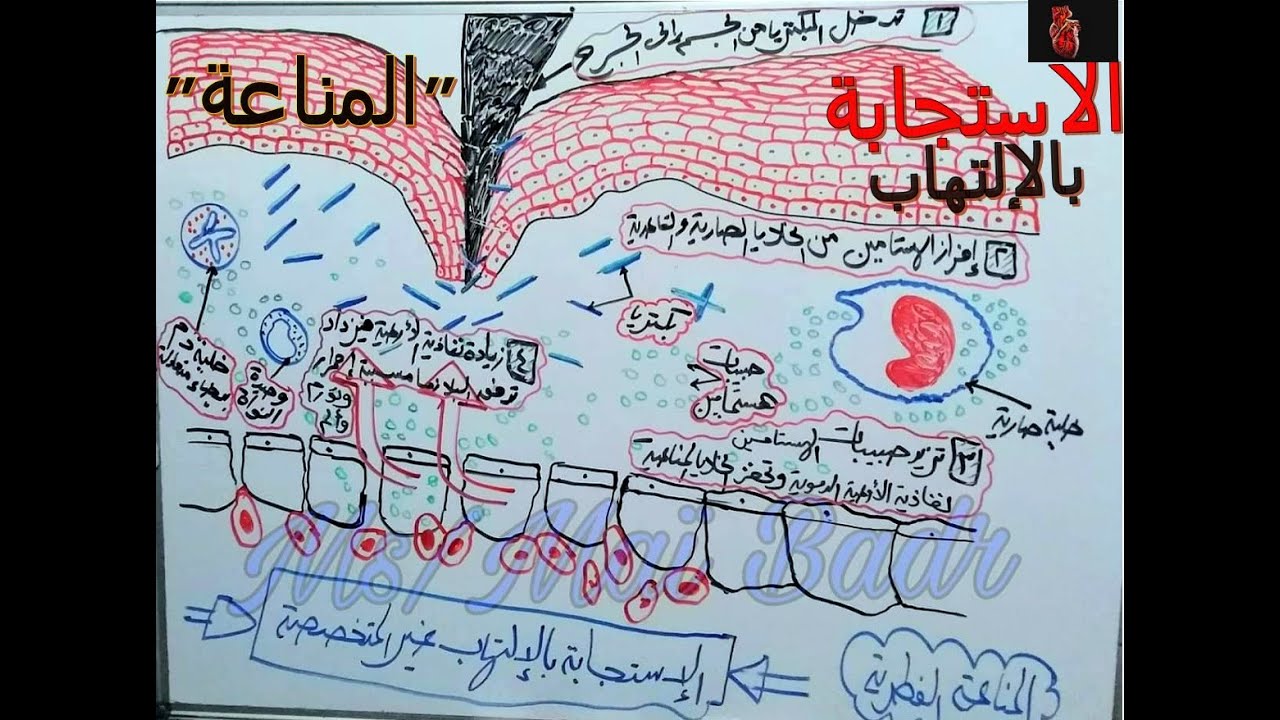 ١ تدخل البكتريا من الجسم إلى الجرح
"المناعة"
الاستجابة
بالإلتهاب
٢ إفراز الهستامين من الخلايا الصارية والقاعدية
بكتريا
٤ زيادة نفاذية الأوعية فيزداد
تدفق البلازما مسببة إحمرار
وتورم
وألم
خلية دم
بيضاء متعادلة
وحيدة
النواة
حبيبات
هستامين
خلية صارية
٣ تزيد حبيبات الهستامين
نفاذية الأوعية الدموية وتحفز الخلايا المناعية
Ms/ Mai Badr
الإستجابة بالإلتهاب غير المتخصصة
المناعة الفطرية